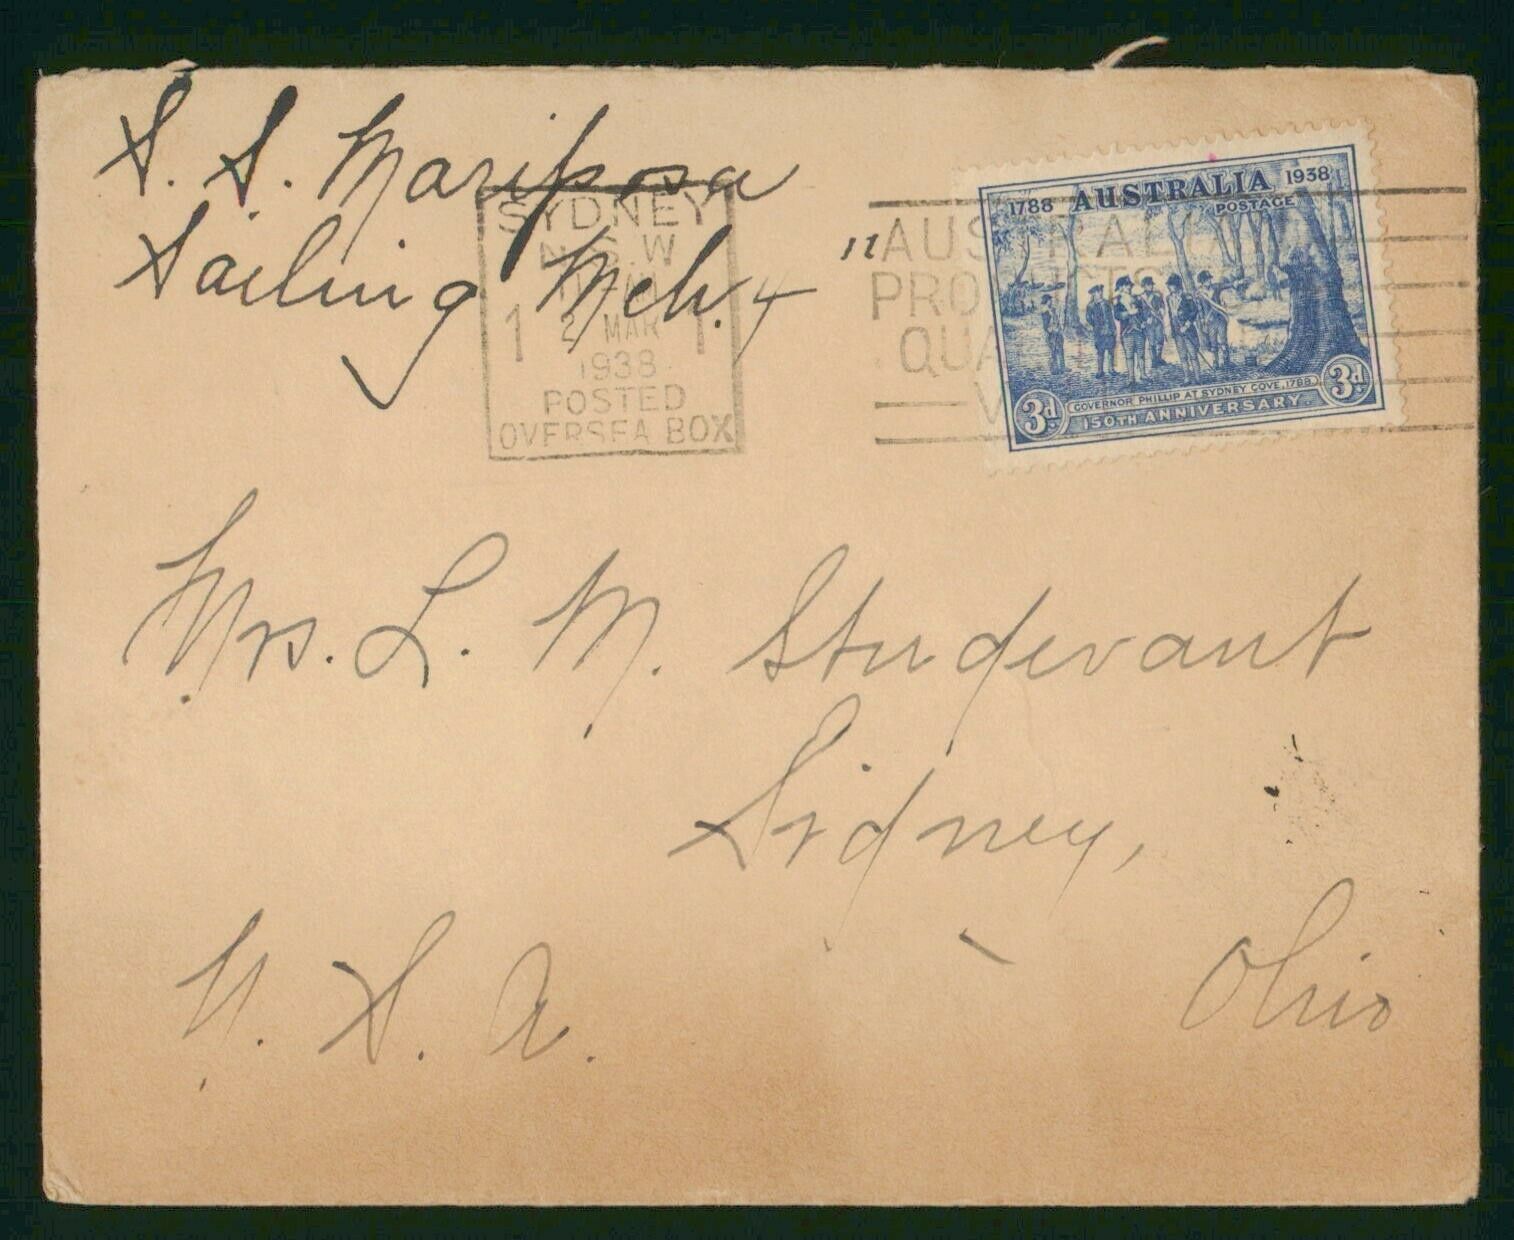 S. S. Mariposa
Sailing Mch. 4
"
SYDNEY
N.S.W
1 2 MAR 1
1938
POSTED
OVERSEA BOX
1788 AUSTRALIA 1938
POSTAGE
3d GOVERNOR PHILLIP AT SYDNEY COVE, 1788 3d
150TH ANNIVERSARY
Mrs. L. M. Studevant
Sidney,
Ohio
U. S. A.